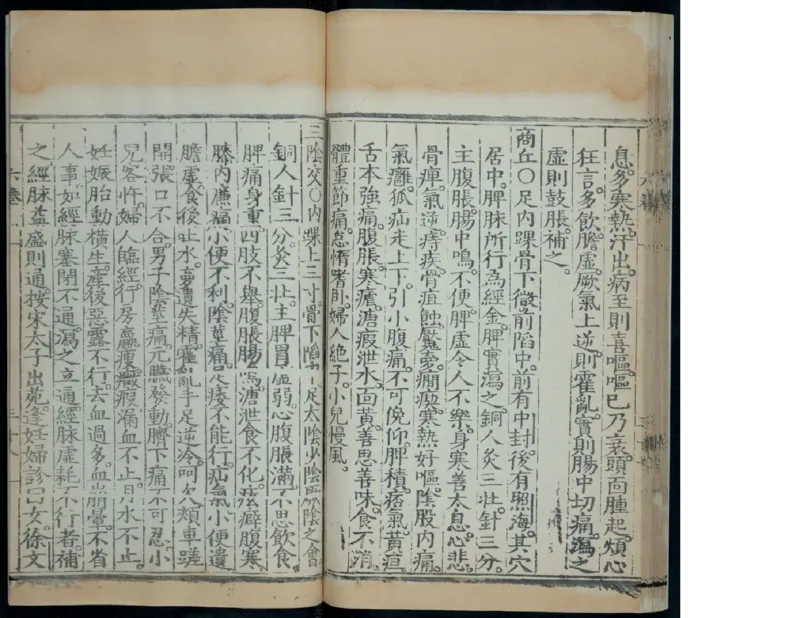 息多寒熱汗出病至則喜嘔嘔已乃衰頭面腫起煩心
狂言多飲膽虛厥氣上逆則霍亂實則腸中切痛瀉之
虛則鼓脹補之
商丘○足內踝骨下微前陷中前有中封後有照海其穴
居中脾脈所行為經金脾實瀉之銅人灸三壯針三分
主腹脹腸中鳴不便脾虛令人不樂身寒善太息心悲
骨痺氣逆痔疾骨疽蝕魘夢癇瘛寒熱好嘔陰股內痛
氣癰狐疝走上下引小腹痛不可俛仰脾積痞氣黃疸
舌本強痛腹脹寒瘧溏瘕泄水面黃善思善味食不消
體重節痛怠惰嗜臥婦人絕子小兒慢風
三陰交○內踝上三寸骨下陷中足太陰少陰厥陰之會
銅人針三分灸三壯主脾胃虛弱心腹脹滿不思飲食
脾痛身重四肢不舉腹脹腸鳴溏泄食不化痃癖腹寒
膝內廉痛小便不利陰莖痛足痿不能行疝氣小便遺
膽虛食後吐水夢遺失精霍亂手足逆冷呵欠頰車蹉
開張口不合男子陰莖痛元臟發動臍下痛不可忍小
兒客忤婦人臨經行房羸瘦癥瘕漏血不止月水不止
妊娠胎動橫生產後惡露不行去血過多血崩暈不省
人事如經脈塞閉不通瀉之立通經脈虛耗不行者補
之經脈益盛則通按宋太子出苑逢妊婦診曰女徐文
六卷
三十八